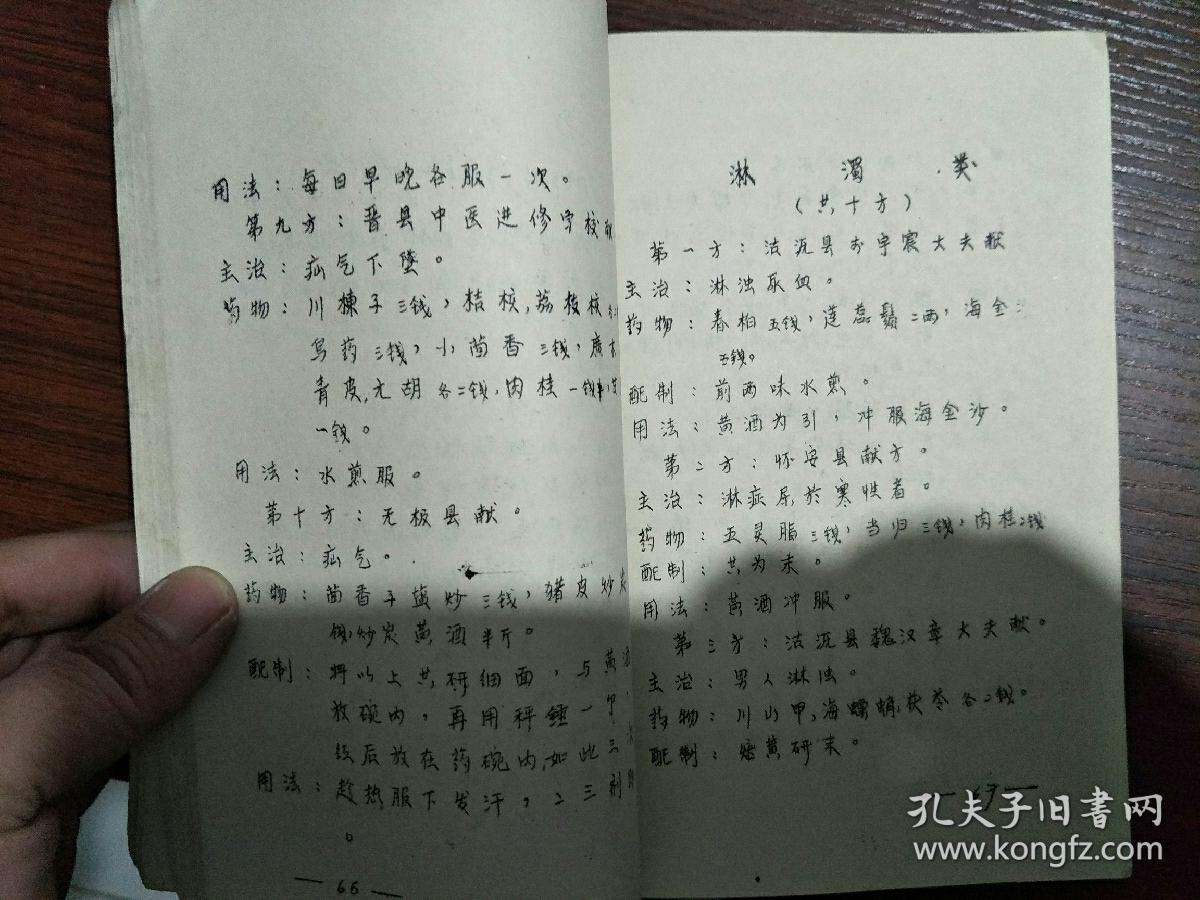 用法：每日早晚各服一次。
第九方：晋县中医进修学校献
主治：疝气下墜。
药物：川楝子三钱，桔核，荔枝核
乌药三钱，小茴香三钱，廣
青皮，元胡各二钱，肉桂一钱半，
一钱。
用法：水煎服。
第十方：无极县献。
主治：疝气。
药物：茴香子盐炒三钱，猪皮炒炭
钱，炒炭黄酒半斤。
配制：将以上共研细面，与黄酒
放碗内。再用秤錘一个，
后放在药碗内，如此三
用法：趁热服下发汗，二三剂
。
— 66 —
淋浊类
（共十方）
第一方：沽沅县 宇宸大夫献
主治：淋浊尿血。
药物：春柏五钱，莲蕊鬚二两，海金
五钱。
配制：前两味水煎。
用法：黄酒为引，冲服海金沙。
第二方：怀安县献方。
主治：淋症属於寒性者。
药物：五灵脂三钱，当归三钱，肉桂二钱
配制：共为末。
用法：黄酒冲服。
第三方：沽沅县魏汉章大夫献。
主治：男人淋浊。
药物：川山甲，海螵蛸，茯苓各二钱。
配制：焙黄研末。
— 67 —
孔夫子旧书网
www.kongfz.com